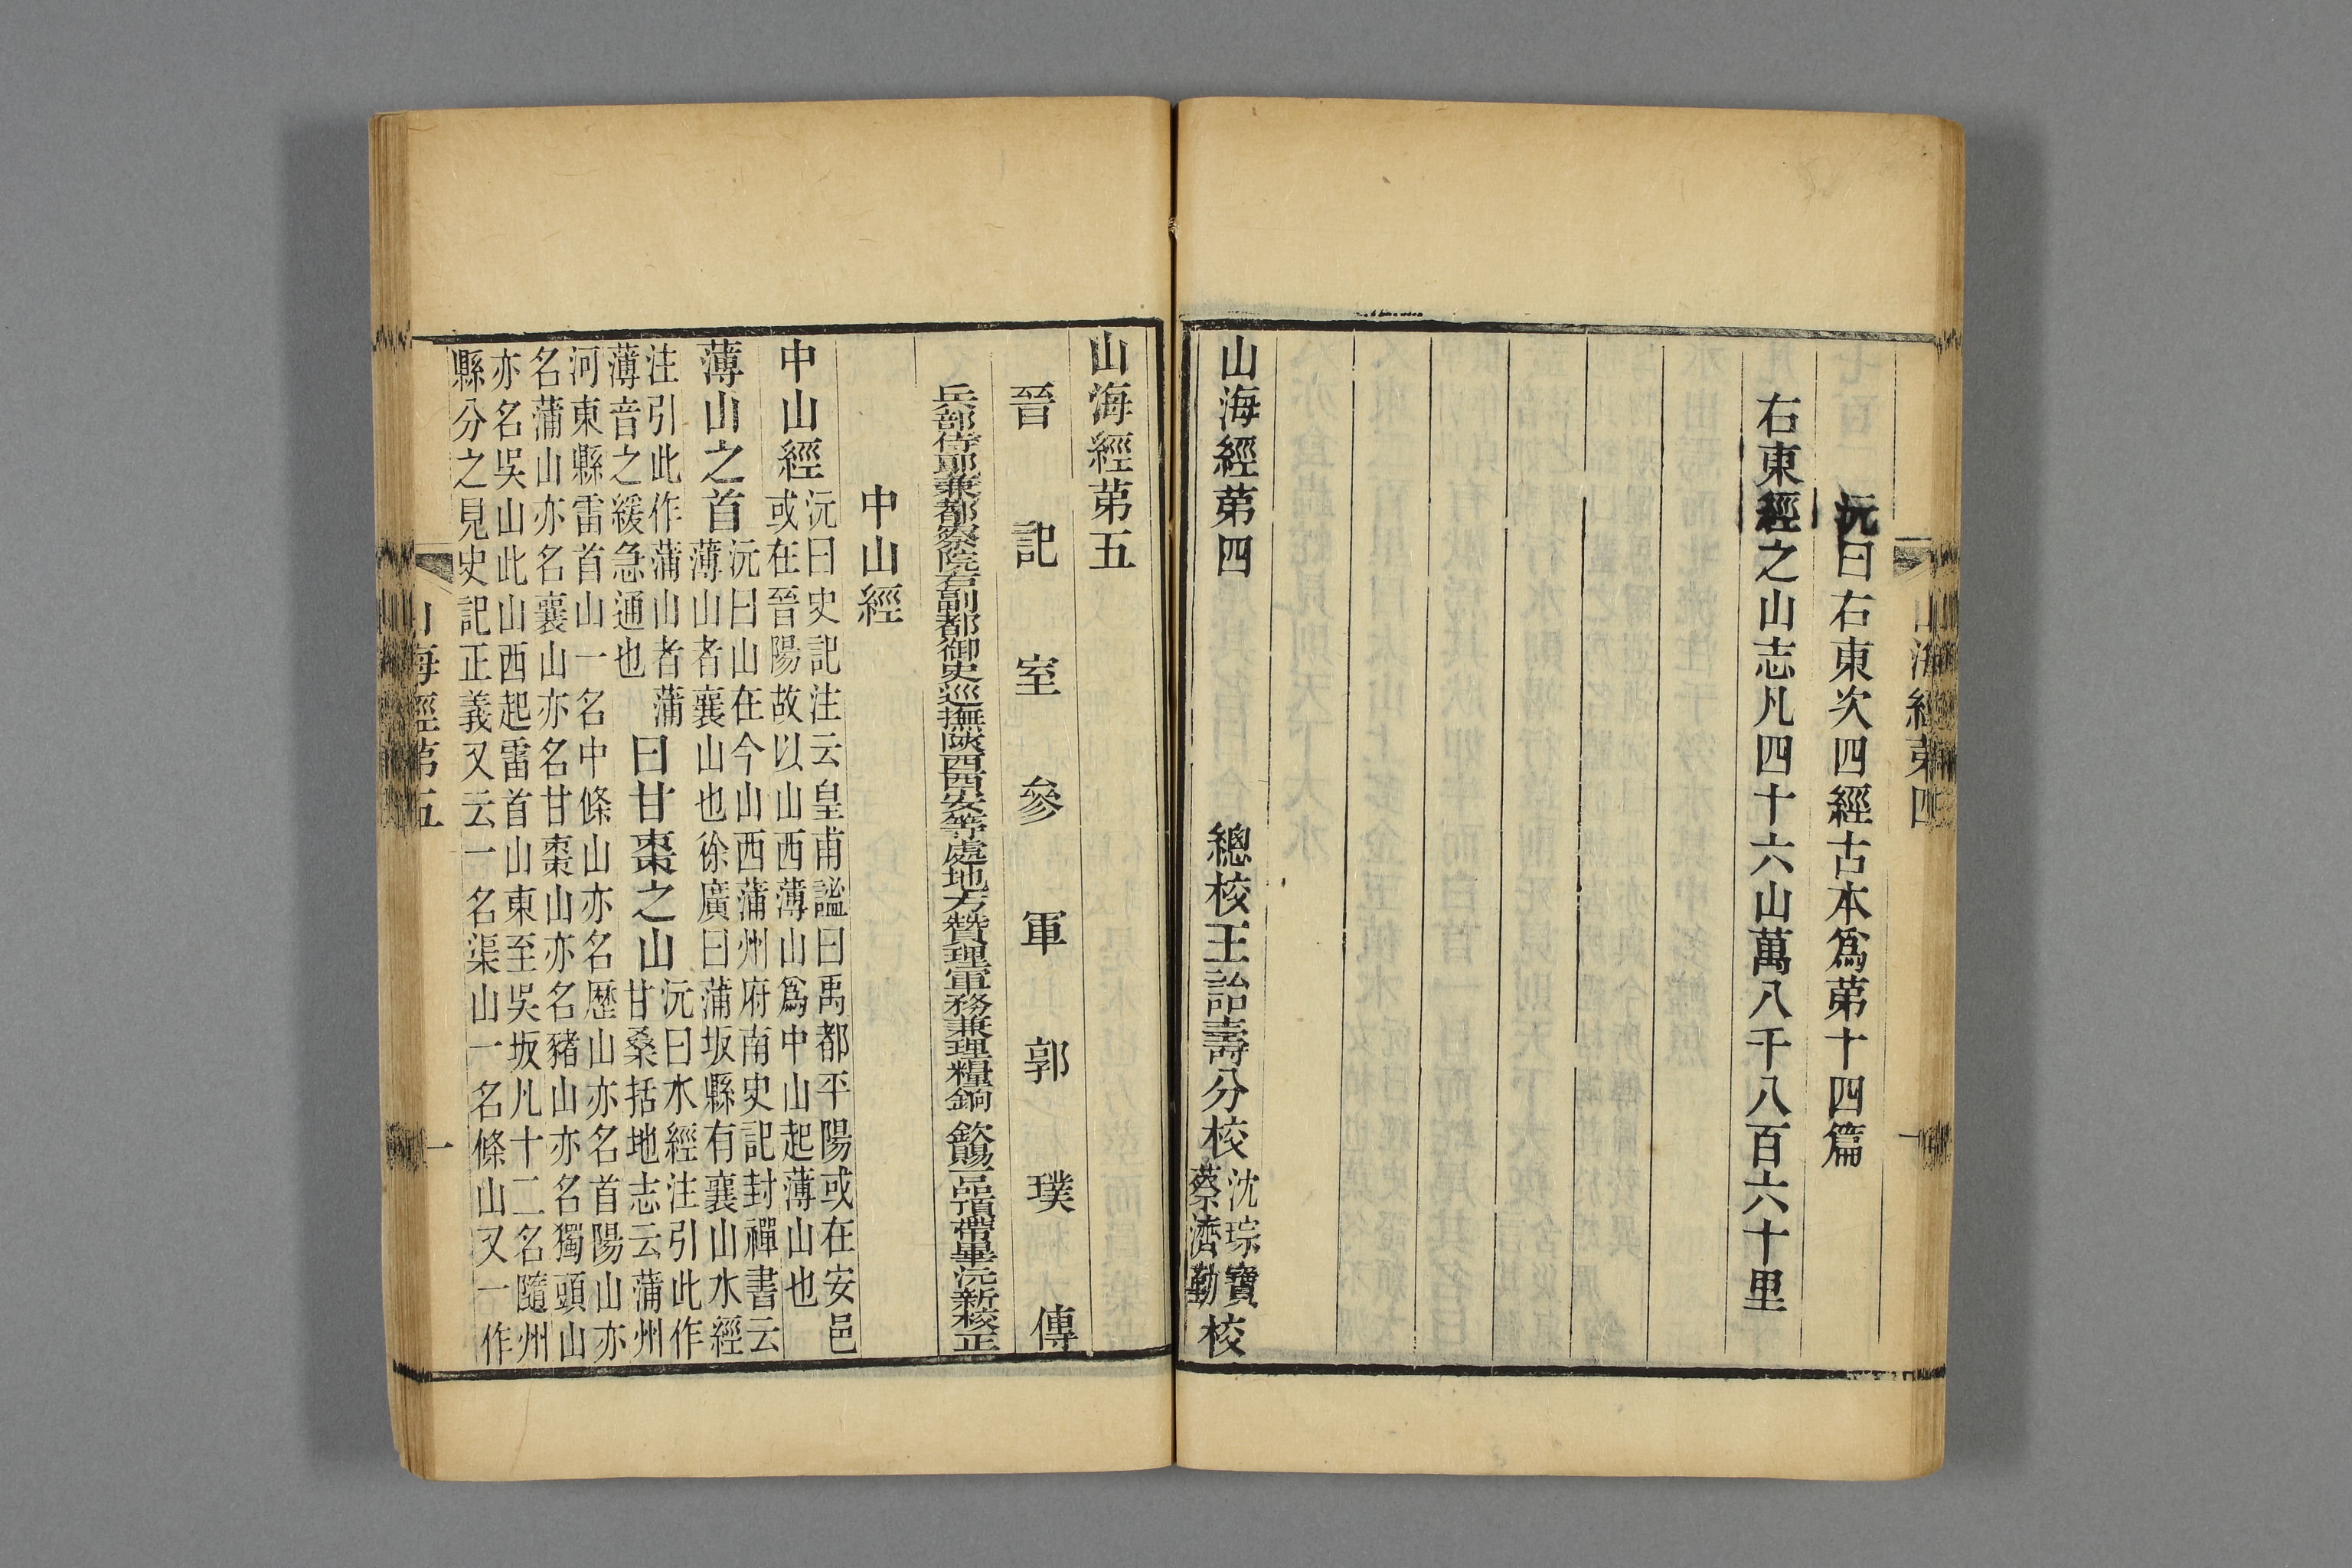 山海經第四
沅曰右東次四經古本爲第十四篇
右東經之山志凡四十六山萬八千八百六十里
山海經第四
總校王詒壽分校沈琮寶蔡濟勤校
山海經第五
晉記室參軍郭璞傳
兵部侍郎兼都察院右副都御史巡撫陝西西安等處地方贊理軍務兼理糧餉 欽賜一品頂帶畢沅新校正
中山經
中山經沅曰史記注云皇甫謐曰禹都平陽或在安邑
或在晉陽故以山西薄山爲中山起薄山也
薄山之首沅曰山在今山西蒲州府南史記封禪書云
薄山者襄山也徐廣曰蒲坂縣有襄山水經
注引此作蒲山者蒲
薄音之緩急通也
曰甘棗之山沅曰水經注引此作
甘桑括地志云蒲州
河東縣雷首山一名中條山亦名歷山亦名首陽山亦
名蒲山亦名襄山亦名甘棗山亦名豬山亦名獨頭山
亦名吳山此山西起雷首山東至吳坂凡十二名隨州
縣分之見史記正義又云一名渠山一名條山又一作
山海經第五
一